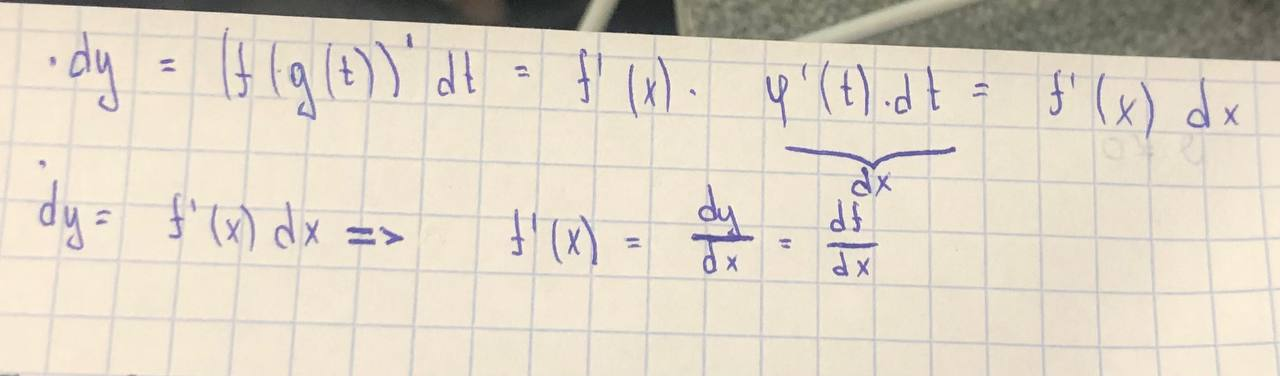 · dy = (f(g(t))' dt = f'(x) · φ'(t) · dt = f'(x) dx
dx
dy = f'(x) dx => f'(x) = dy/dx = df/dx